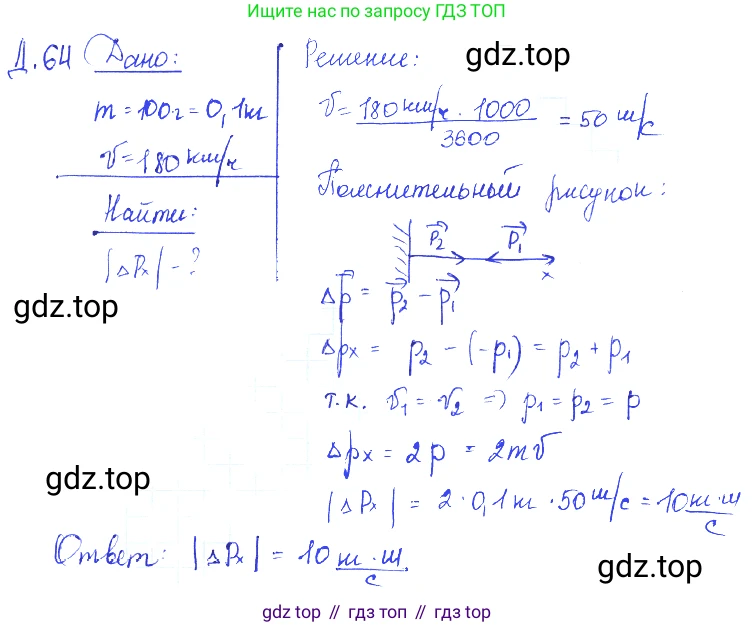 Ищите нас по запросу ГДЗ ТОП
Д.64 Дано:
m = 100г = 0,1кг
v = 180 км/ч
Найти:
|Δpx| - ?
gdz.top
Решение:
gdz.top
v = 180 км/ч · 1000 / 3600 = 50 м/с
Пояснительный рисунок:
p₂ p₁
x
Δp = p₂ - p₁
Δpx = p₂ - (-p₁) = p₂ + p₁
т.к. v₁ = v₂ => p₁ = p₂ = p
Δpx = 2p = 2mv
gdz.top
|Δpx| = 2 · 0,1кг · 50 м/с = 10 кг · м / с
Ответ: |Δpx| = 10 кг · м / с.
gdz.top
gdz.top // гдз топ // gdz.top